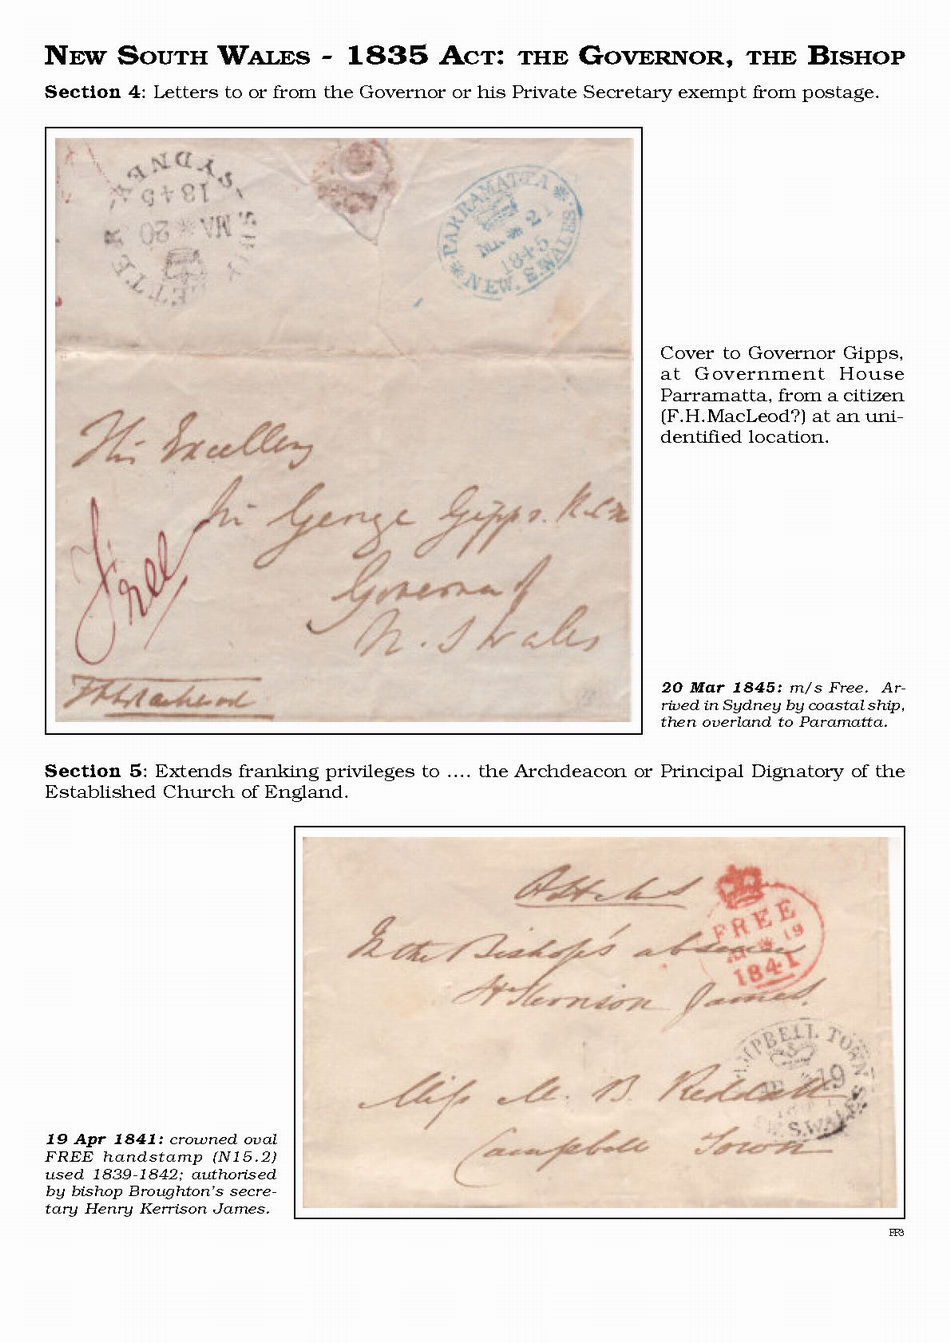 New South Wales - 1835 Act: the Governor, the Bishop
Section 4: Letters to or from the Governor or his Private Secretary exempt from postage.
SHIP LETTER
MA 20
1845
SYDNEY
PARRAMATTA
21
1845
NEW. S. WALES
Cover to Governor Gipps,
at Government House
Parramatta, from a citizen
(F.H.MacLeod?) at an uni-
dentified location.
His Excellency
Sir George Gipps.
Free
Governor of
N. S Wales
20 Mar 1845: m/s Free. Ar-
rived in Sydney by coastal ship,
then overland to Paramatta.
Section 5: Extends franking privileges to .... the Archdeacon or Principal Dignatory of the
Established Church of England.
FREE
19
1841
In the Bishop's absence
H Kerrison James.
CAMPBELL TOWN
19
S. WALES
Miss M. B. Reddall
Campbell Town
19 Apr 1841: crowned oval
FREE handstamp (N15.2)
used 1839-1842; authorised
by bishop Broughton's secre-
tary Henry Kerrison James.
FF3